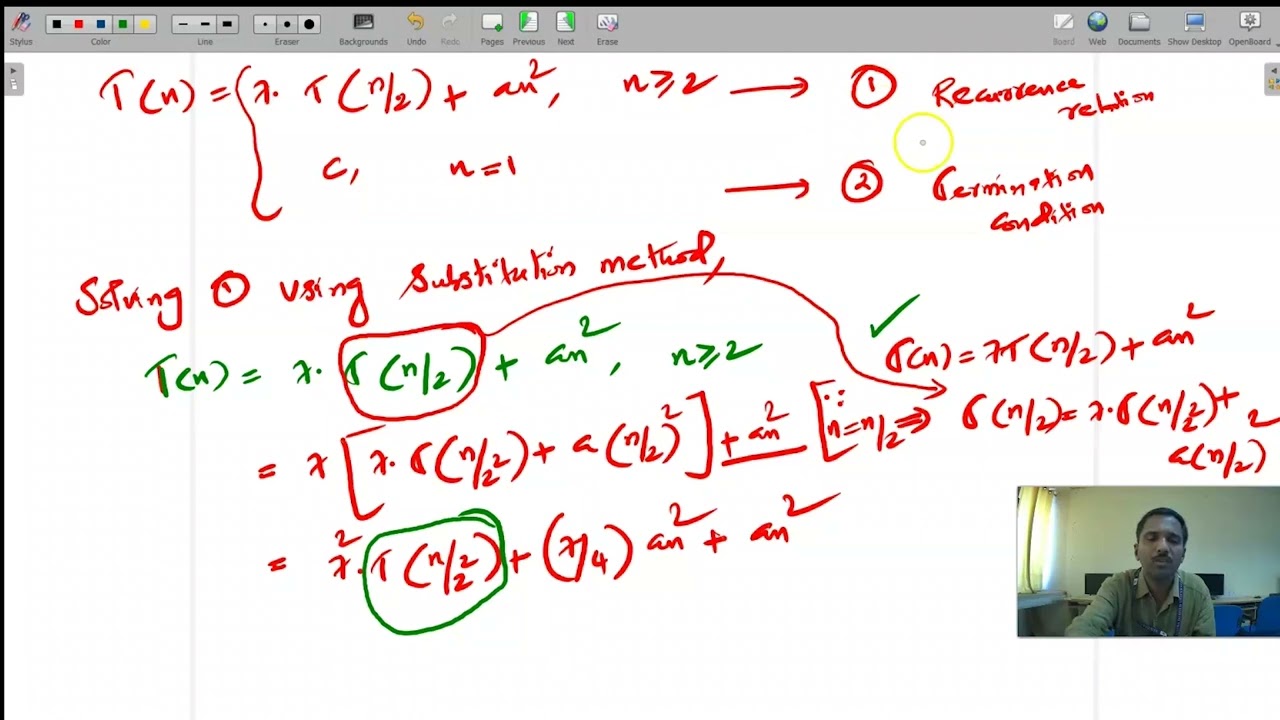 Stylus Color Line Eraser Backgrounds Undo Redo Pages Previous Next Erase Board Web Documents Show Desktop OpenBoard
T(n) = { 7. T(n/2) + an², n≥2 → ① Recurrence relation
c, n=1 → ② Termination condition
Solving ① using Substitution method,
T(n) = 7. T(n/2) + an², n≥2
✓ T(n) = 7T(n/2) + an²
= 7 [ 7. T(n/2²) + a(n/2)² ] + an² [∵ n=n/2 ⇒ T(n/2) = 7. T(n/2²) + a(n/2)²
= 7². T(n/2²) + (7/4) an² + an²